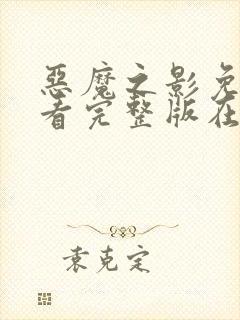 恶魔之影免
看完整版在
袁克定